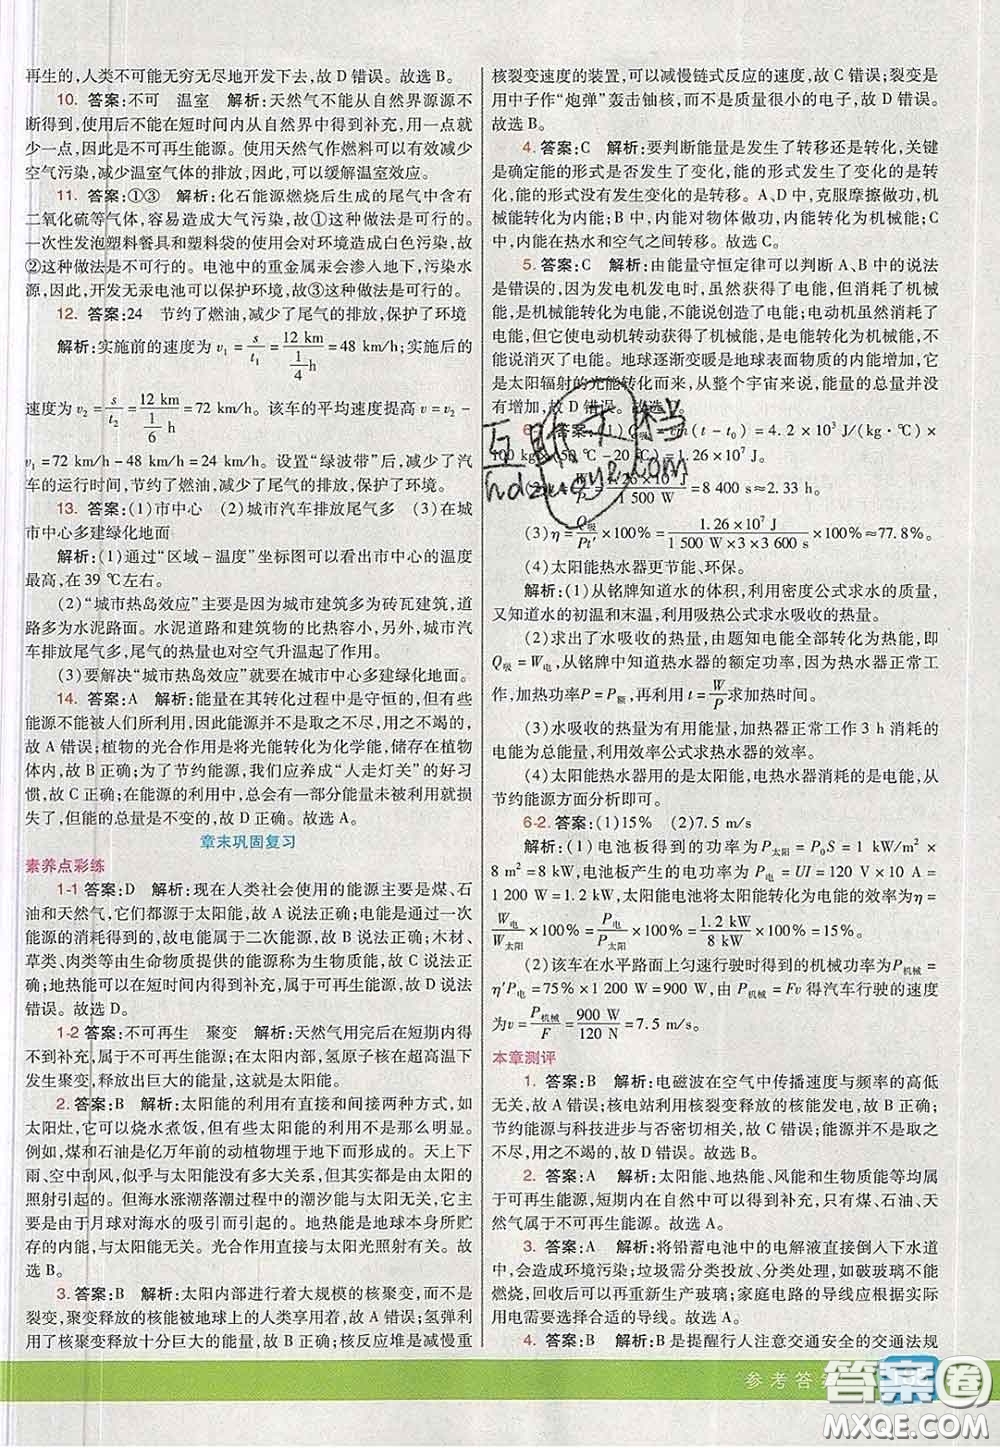 再生的,人类不可能无穷无尽地开发下去,故 D 错误。故选 B。
10. 答案:不可 温室 解析:天然气不能从自然界源源不
断得到,使用后不能在短时间内从自然界中得到补充,用一点就
少一点,因此是不可再生能源。使用天然气作燃料可以有效减少
空气污染,减少温室气体的排放,因此,可以缓解温室效应。
11. 答案:①③ 解析:化石能源燃烧后生成的尾气中含有
二氧化硫等气体,容易造成大气污染,故①这种做法是可行的。
一次性发泡塑料餐具和塑料袋的使用会对环境造成白色污染,故
②这种做法是不可行的。电池中的重金属汞会渗入地下,污染水
源,因此,开发无汞电池可以保护环境,故③这种做法是可行的。
12. 答案:24 节约了燃油,减少了尾气的排放,保护了环境
解析:实施前的速度为 v₁=s/t₁=12 km/(1/4 h)=48 km/h;实施后的
速度为 v₂=s/t₂=12 km/(1/6 h)=72 km/h。该车的平均速度提高 v=v₂-
v₁=72 km/h-48 km/h=24 km/h。设置“绿波带”后,减少了汽
车的运行时间,节约了燃油,减少了尾气的排放,保护了环境。
13. 答案:(1)市中心 (2)城市汽车排放尾气多 (3)在城
市中心多建绿化地面
解析:(1)通过“区域-温度”坐标图可以看出市中心的温度
最高,在 39 ℃左右。
(2)“城市热岛效应”主要是因为城市建筑多为砖瓦建筑,道
路多为水泥路面。水泥道路和建筑物的比热容小,另外,城市汽
车排放尾气多,尾气的热量也对空气升温起了作用。
(3)要解决“城市热岛效应”就要在城市中心多建绿化地面。
14. 答案:A 解析:能量在其转化过程中是守恒的,但有些
能源不能被人们所利用,因此能源并不是取之不尽,用之不竭的,
故 A 错误;植物的光合作用是将光能转化为化学能,储存在植物
体内,故 B 正确;为了节约能源,我们应养成“人走灯关”的好习
惯,故 C 正确;在能源的利用中,总会有一部分能量未被利用而损
失了,但能的总量是不变的,故 D 正确。故选 A。
章末巩固复习
素养点彩练
1-1 答案:D 解析:现在人类社会使用的能源主要是煤、石
油和天然气,它们都来源于太阳能,故 A 说法正确;电能是通过一次
能源的消耗得到的,故电能属于二次能源,故 B 说法正确;木材、
草类、肉类等由生命物质提供的能源称为生物质能,故 C 说法正
确;地热能可以在短时间内得到补充,属于可再生能源,故 D 说法
错误。故选 D。
1-2 答案:不可再生 聚变 解析:天然气用完后在短期内得
不到补充,属于不可再生能源;在太阳内部,氢原子核在超高温下
发生聚变,释放出巨大的能量,这就是太阳能。
2. 答案:B 解析:太阳能的利用有直接和间接两种方式,如
太阳灶,它可以烧水煮饭,但有些太阳能的利用不是那么明显的。
例如,煤和石油是亿万年前的动植物埋于地下而形成。天上下
雨、空中刮风,似乎与太阳能没有多大关系,但其实都是由太阳的
照射引起的。但海水涨潮落潮过程中的潮汐能与太阳能的照射
无关,是由于月球对海水的吸引而引起的。地热能是地球本身所贮
存的内能,与太阳能无关。光合作用直接与太阳光照射有关。故
选 B。
3. 答案:B 解析:太阳内部进行着大规模的核聚变,而不是
裂变,聚变释放的核能被地球上的人类享用着,故 A 错误;氢弹利
用了核聚变释放十分巨大的能量,故 B 正确;核反应堆是减慢重
核裂变速度的装置,可以减慢链式反应的速度,故 C 错误;裂变是
用中子作“炮弹”轰击铀核,而不是质量很小的电子,故 D 错误。
故选 B。
4. 答案:C 解析:要判断能量是发生了转移还是转化,关键
是确定能的形式是否发生了变化,能的形式发生了变化的是转
化,能的形式没有发生变化的是转移。A、D 中,克服摩擦做功,机
械能转化为内能;B 中,内能对物体做功,内能转化为机械能;C
中,内能在热水和空气之间转移。故选 C。
5. 答案:C 解析:由能量守恒定律可以判断 A、B 中的说法
是错误的,因为发电机发电时,虽然获得了电能,但消耗了机械
能,是机械能转化为电能,不能说创造了电能;电动机虽然消耗了电
能,但它不能使电动机转动获得了机械能,是电能转化为机械能,不
能说消灭了电能。地球逐渐变暖是地球表面物质的内能增加,它
是太阳辐射的光能转化而来,从整个宇宙来说,能量的总量并没
有增加,故 D 错误。故选
答案:(1)Q (t-t₀)=4.2×10³ J/(kg·℃)×
100 kg (50 ℃-20 ℃)=1.26×10⁷ J。
1.26×10⁷ J/1 500 W=8 400 s≈2.33 h。
(3)η=Q吸/Pt′×100%=1.26×10⁷ J/(1 500 W×3×3 600 s)×100%≈77.8%。
(4)太阳能热水器更节能、环保。
解析:(1)从铭牌知道水的体积,利用密度公式求水的质量,
又知道水的初温和末温,利用吸热公式求水吸收的热量。
(2)求出了水吸收的热量,由题知电能全部转化为热能,即
Q吸=W电,从铭牌中知道热水器的额定功率,因为热水器正常工
作,加热功率 P=P额,再利用 t=W/P求加热时间。
(3)水吸收的热量为有用能量,加热器正常工作 3 h 消耗的
电能为总能量,利用效率公式求热水器的效率。
(4)太阳能热水器用的是太阳能,电热水器消耗的是电能,从
节约能源方面分析即可。
6-2. 答案:(1)15% (2)7.5 m/s
解析:(1)电池板得到的功率为 P太阳=P₀S=1 kW/m²×
8 m²=8 kW,电池板产生的电功率为 P电=UI=120 V×10 A=
1 200 W=1.2 kW。太阳能电池将太阳能转化为电能的效率 η=
W电/W太阳×100%=P电/P太阳×100%=1.2 kW/8 kW×100%=15%。
(2)该车在水平路面上匀速行驶时得到的机械功率为 P机械=
η′P电=75%×1 200 W=900 W;由 P机械=Fv 得汽车行驶的速度
为v=P机械/F=900 W/120 N=7.5 m/s。
本章测评
1. 答案:B 解析:电磁波在空气中传播速度与频率的高低
无关,故 A 错误;核电站利用核裂变释放的核能发电,故 B 正确;
节约能源与科技进步与否密切相关,故 C 错误;能源并不是取之不
尽,用之不竭的,故 D 错误。故选 B。
2. 答案:A 解析:太阳能、地热能、风能和生物质能等均属
于可再生能源,短期内在自然中可以得到补充,只有煤、石油、天
然气属于不可再生能源。故选 A。
3. 答案:A 解析:将铅蓄电池中的电解液直接倒入下水道
中,会造成环境污染;垃圾需分类投放、分类处理,如废玻璃不能
燃烧,回收后可以再重新生产玻璃;家庭电路的导线应根据实际
用电需要选择合适的导线。故选 A。
4. 答案:B 解析:B 是提醒行人注意交通安全的交通法规
参考答案
答案卷
MXQE.COM